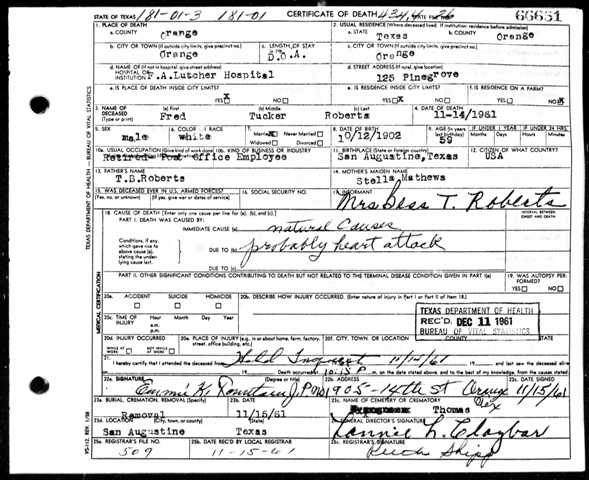 STATE OF TEXAS 181-01-3 181-01 CERTIFICATE OF DEATH STATE FILE NO. 66651
1. PLACE OF DEATH
a. COUNTY Orange
2. USUAL RESIDENCE (Where deceased lived. If institution: residence before admission)
a. STATE Texas b. COUNTY Orange
b. CITY OR TOWN (If outside city limits, give precinct no.) Orange
c. LENGTH OF STAY D.O.A.
c. CITY OR TOWN (If outside city limits, give precinct no.) Orange
d. NAME OF (If not in hospital, give street address)
HOSPITAL OR INSTITUTION F.A.Lutcher Hospital
d. STREET ADDRESS (If rural, give location)
125 Pinegrove
e. IS PLACE OF DEATH INSIDE CITY LIMITS?
YES X NO
e. IS RESIDENCE INSIDE CITY LIMITS?
YES X NO
f. IS RESIDENCE ON A FARM?
YES NO X
3. NAME OF DECEASED (Type or print)
(a) First Fred
(b) Middle Tucker
(c) Last Roberts
4. DATE OF DEATH
11-14/1961
5. SEX male
6. COLOR OR RACE White
7. Married X Never Married
Widowed Divorced
8. DATE OF BIRTH
10/12/1902
9. AGE (In years last birthday) 59
IF UNDER 1 YEAR
IF UNDER 24 HRS.
10a. USUAL OCCUPATION (Give kind of work done)
10b. KIND OF BUSINESS OR INDUSTRY
Retired Post Office Employee
11. BIRTHPLACE (State or foreign country)
San Augustine, Texas
12. CITIZEN OF WHAT COUNTRY?
USA
13. FATHER'S NAME
T.B.Roberts
14. MOTHER'S MAIDEN NAME
Stella Mathews
15. WAS DECEASED EVER IN U.S. ARMED FORCES?
(Yes, no, or unknown) (If yes, give war or dates of service)
16. SOCIAL SECURITY NO.
17. INFORMANT
Mrs Bess T. Roberts
18. CAUSE OF DEATH [Enter only one cause per line for (a), (b), and (c).]
INTERVAL BETWEEN ONSET AND DEATH
PART I. DEATH WAS CAUSED BY:
IMMEDIATE CAUSE (a) natural causes
Conditions, if any, which gave rise to above cause (a), stating the underlying cause last.
DUE TO (b) probably heart attack
DUE TO (c)
PART II. OTHER SIGNIFICANT CONDITIONS CONTRIBUTING TO DEATH BUT NOT RELATED TO THE TERMINAL DISEASE CONDITION GIVEN IN PART I(a)
19. WAS AUTOPSY PERFORMED?
YES NO
20a. ACCIDENT SUICIDE HOMICIDE
20b. DESCRIBE HOW INJURY OCCURRED. (Enter nature of injury in Part I or Part II of item 18.)
20c. TIME OF INJURY Hour a.m. p.m. Month Day Year
TEXAS DEPARTMENT OF HEALTH
REC'D DEC 11 1961
BUREAU OF VITAL STATISTICS
20d. INJURY OCCURRED
WHILE AT WORK NOT WHILE AT WORK
20e. PLACE OF INJURY (e.g., in or about home, farm, factory, street, office building, etc.)
20f. CITY, TOWN, OR LOCATION COUNTY STATE
21. I hereby certify that I attended the deceased from Held Inquest 11/14/61 19 and last saw the deceased alive
19 Death occurred at 10:15 P.m. on the date stated above, and to the best of my knowledge, from the causes stated.
22a. SIGNATURE
22b. ADDRESS 905-14th St Orange
22c. DATE SIGNED 11/15/61
23a. BURIAL, CREMATION, REMOVAL (Specify)
Removal
23b. DATE 11/15/61
23c. NAME OF CEMETERY OR CREMATORY
Thomas
23d. LOCATION (City, town, or county) (State)
San Augustine Texas
24. FUNERAL DIRECTOR'S SIGNATURE
Lannie L. Claybar
25a. REGISTRAR'S FILE NO.
509
25b. DATE REC'D BY LOCAL REGISTRAR
11-15-61
25c. REGISTRAR'S SIGNATURE
Ruth Shipp
TEXAS DEPARTMENT OF HEALTH — BUREAU OF VITAL STATISTICS
MEDICAL CERTIFICATION
VS-112, REV. 1/58